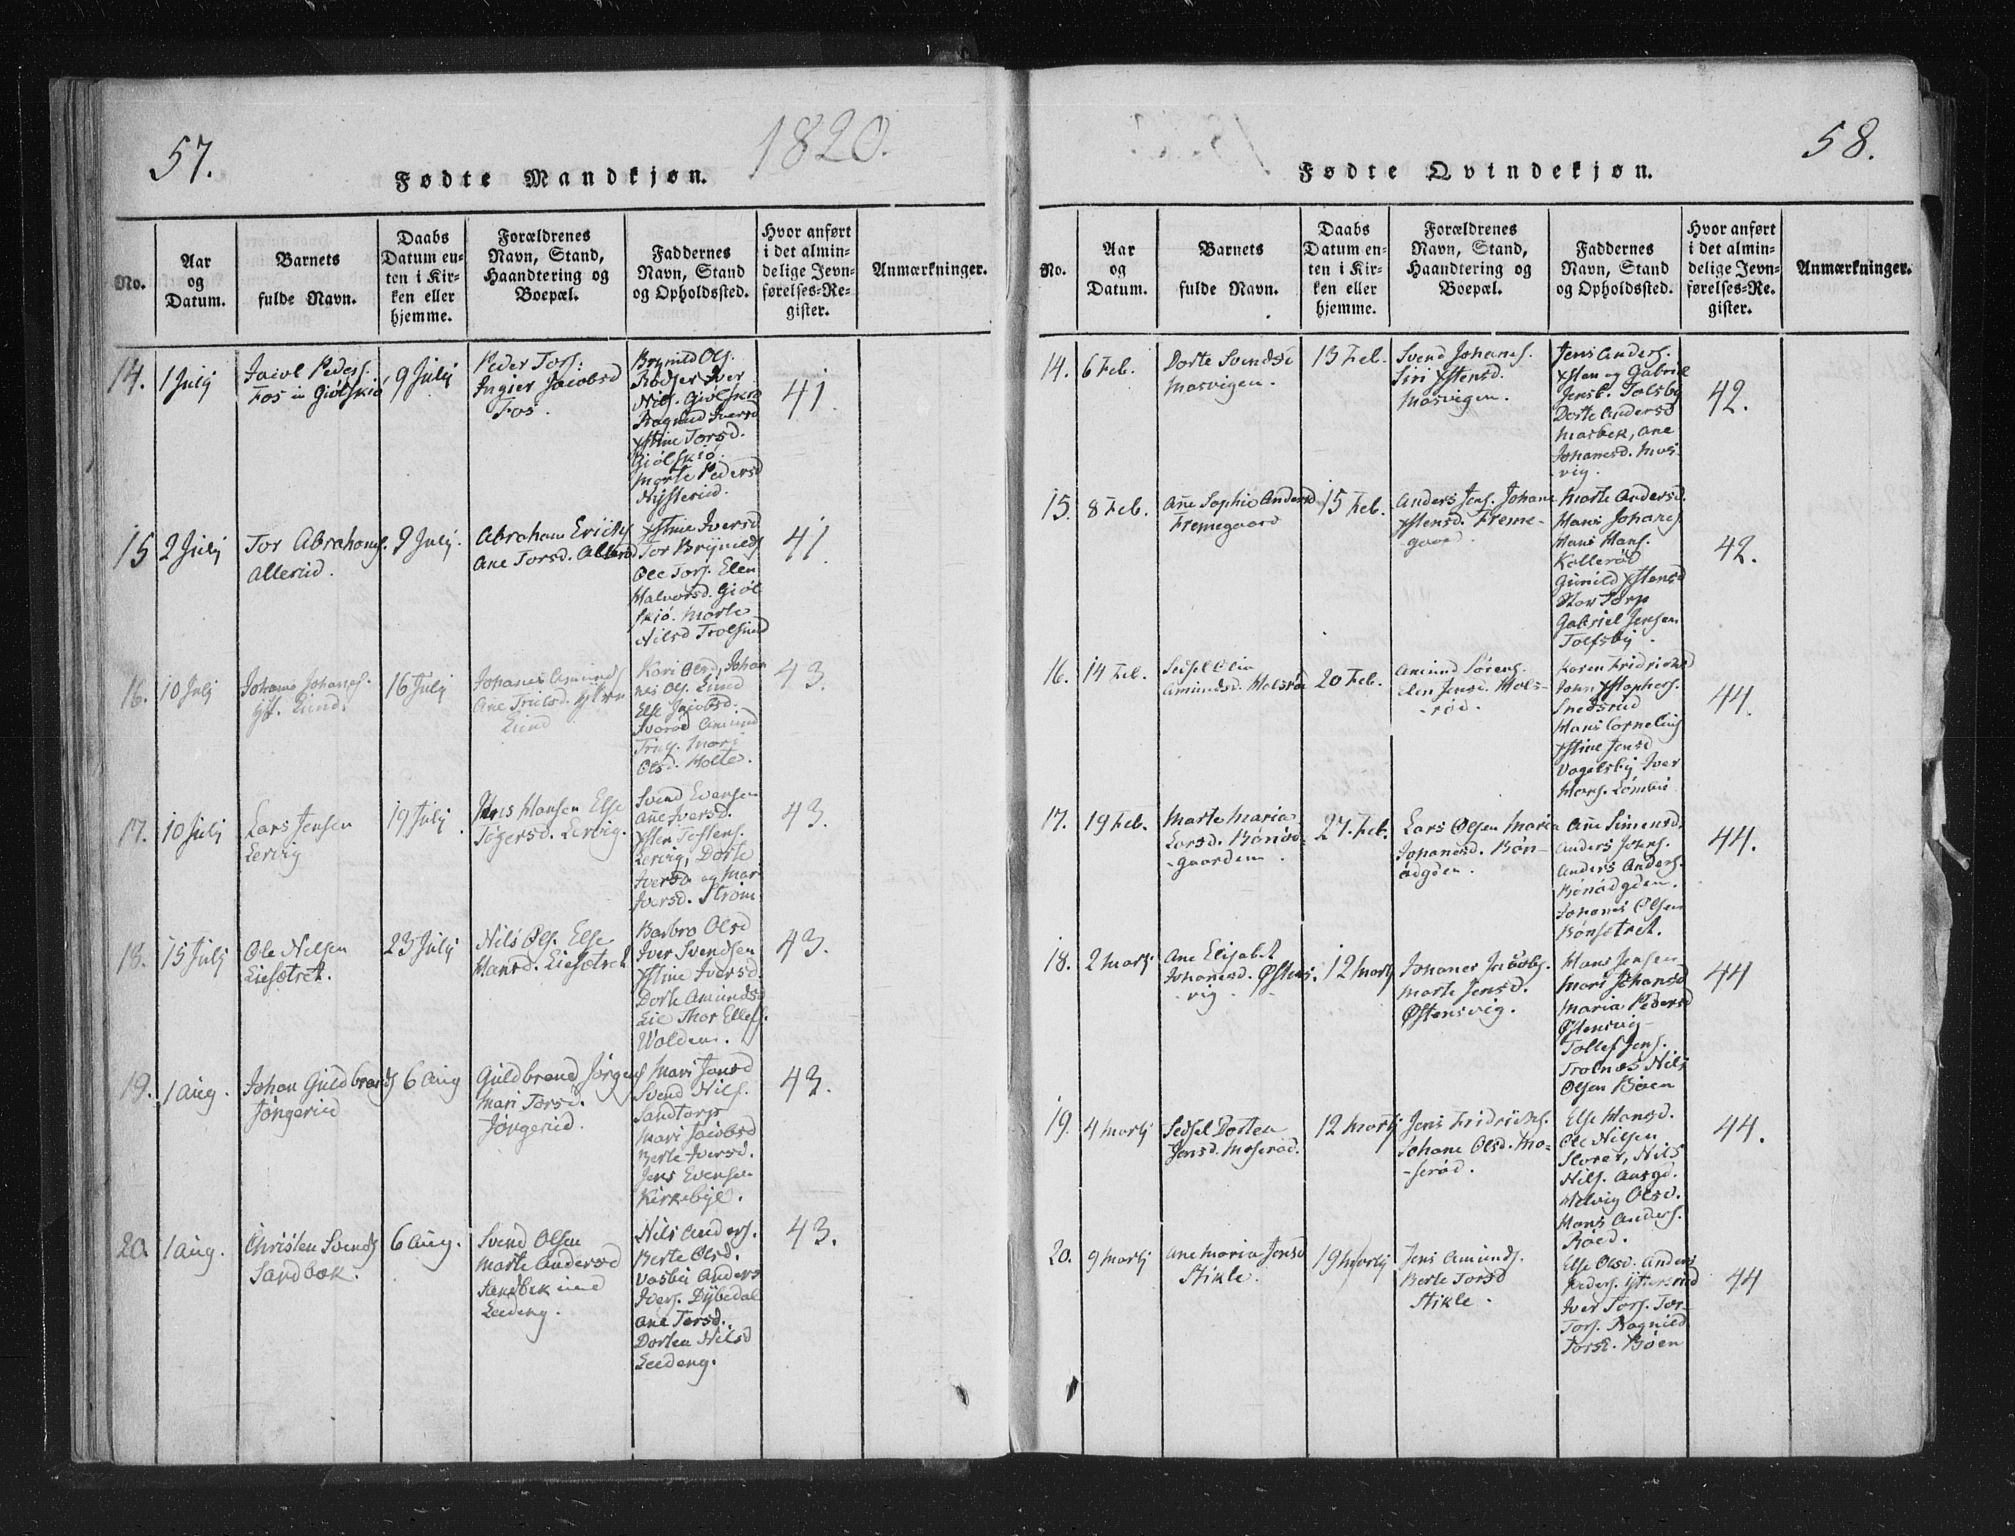 57.
1820.
Fødte Mandkjøn.
No.
Aar
og
Datum.
Barnets
fulde Navn.
Daabs
Datum en-
ten i Kir-
ken eller
hjemme.
Forældrenes
Navn, Stand,
Haandtering og
Boepæl.
Faddernes
Navn, Stand
og Opholdssted.
Hvor anført
i det almin-
delige Jevn-
førelses-Re-
gister.
Anmærkninger.
14.
1 Julj
Jacob Peders.
Fos
9 Julj
Peder Tors.
Ingier Jacobsd
Fos.
Brynild Ols.
Rødser Iver
Nils. Giølskiø
Ragnild Iversd
Torsd.
Giølskiø.
Marte Pedersd
41
15
2 Julj
Tor Abrahams.
Allerud.
9 Julj.
Abraham Erichs
Ane Torsd. Allerud
Iversd
Tor
Ole Tors. Elen
Halvorsd. Giøl
skiø. Marte
Nilsd
41
16.
10 Julj
Johans.
Lund.
16 Julj
Johanes Amunds
Ane
Lund
Kari Olsd, Johan
nes Ols. Lund
Else Jacobsd.
Amund
Mari
Olsd. Holte.
43.
17.
10 Julj
Lars Jensen
Lervig
19 Julj
Jens Hansen Else
Tøgersd. Lervig.
Svend Evensen
Ane Iversd.
Lervig, Dorte
Iversd. og Mar
Iversd. Strøm.
43.
18.
15 Julj
Ole Nelsen
Liesætret.
23 Julj
Nils Ols. Else
Hansd. Liesætret
Barbro Olsd
Iver Svendsen
Iversd.
Dorte Amundsd
Lie Thor Ellefs.
Wolden.
43.
19.
1 Aug.
Johan Guldbrands
Jøngerud
6 Aug
Guldbrand Jørgens
Mari Torsd.
Jøngerud.
Mari Jensd
Svend Nils.
Sandtorp
Mari Jacobsd
Berte Iversd.
Jens Evensen
Kirkebye.
43.
20.
1 Aug.
Christen Svends
Sandbæk.
6 Aug.
Svend Olsen
Marte Andersd
Sandbek
Leedeng.
Nils Anders.
Berte Olsd.
Anders
Ivers. Dybedal
Ane Torsd.
Dorten Nilsd
Leedeng.
43.
58.
Fødte Qvindekjøn.
No.
Aar
og
Datum.
Barnets
fulde Navn.
Daabs
Datum en-
ten i Kir-
ken eller
hjemme.
Forældrenes
Navn, Stand,
Haandtering og
Boepæl.
Faddernes
Navn, Stand
og Opholdssted.
Hvor anført
i det almin-
delige Jevn-
førelses-Re-
gister.
Anmærkninger.
14.
6 Feb.
Dorte Svendsd
Masvigen.
13 Feb.
Svend Johanes.
Siri Xstensd.
Masvigen.
Jens Anders.
Xsten og Gabriel
Jens. Tolfsby
Dorte Andersd
Ane
Johanesd. Mas-
vig.
42.
15.
8 Feb.
Ane Sophie Andersd
Fremegaard
15 Feb.
Anders Jens. Johane
Xstensd. Freme-
gaard.
Marte Andersd.
Hans Johanes
Hans Hans.
Kollerød
Gunild Xstensd
Stor Torp
Gabriel Jensen
Tolfsby.
42.
16.
14 Feb.
Sedsel Olia
Amundsd. Holsrød
20 Feb.
Amund Sørens.
Elen Jensd. Hols-
-rød.
Karen Fridrichsd
John Xstophers.
Snedsrud
Hans Cornelius
Xstine Jensd
Vogelsby Iver
Hans.
44.
17.
19 Feb.
Marte Maria
Larsd. Bønød-
-gaarden
27. Feb.
Lars Olsen Maria
Johanesd. Bøn-
ødgden.
Ane Simensd,
Anders Jens.
Anders Anders.
Bønødgden.
Johanes Olsen
Bønsetret.
44.
18.
2 Martj
Ane Elisabet
Johanesd. Østens-
-vig.
12 Martj
Johanes Jacobs.
Marte Jensd.
Østensvig.
Hans Jensen
Mari Johansd
Maria Pedersd
Østensvig-
Tollef Jens.
Trolnæs Nils
Olsen Bøen
44
19.
4 Martj
Sedsel Dorten
Jensd. Moserød.
12 Martj
Jens Fridrichs.
Johane Olsd. Mo-
-serød.
Else Hansd.
Ole Nilsen
Nils
Nils. Aasgd.
Helvig Olsd.
Hans Anders.
Røed.
44.
20.
9 Martj
Ane Maria Jensd
Stikle.
19 Martj
Jens Amunds.
Berte Torsd
Stikle.
Else Olsd. Anders
Peders.
Iver Tors. Tor-
Tors. Ragnild
Torsd. Bøen
44